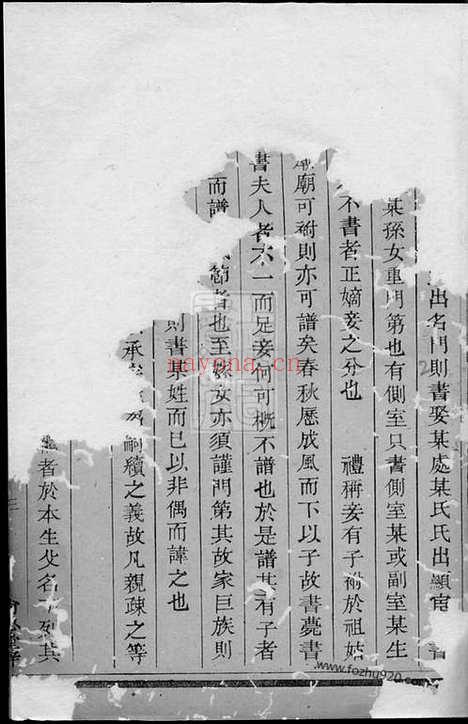 出名門則書娶某處某氏氏出顯宦
某孫女重門第也有側室只書側室某或副室某生
不書者正嫡妾之分也 禮稱妾有子祔於祖姑
廟可祔則亦可譜矣春秋歷成風而下以子故書薨書
書夫人者不一而足妾何可概不譜也於是譜其有子者
而譜 簡者也至嫁女亦須謹門第其故家巨族則
則書某姓而已以非偶而諱之也
承 嗣續之義故凡親疎之等
者於本生父名 列其
三
nayona.cn
www.fozhu920.com